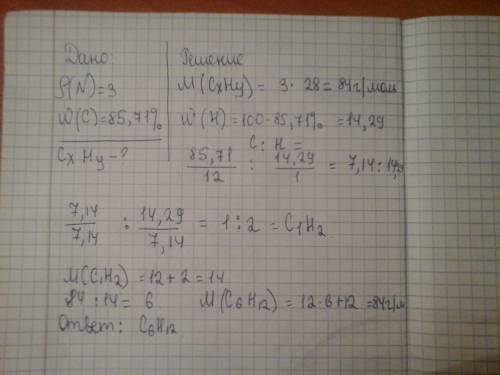 Дано:
ρ(N)=3
ω(C)=85,71%
CxHy-?
Решение
M(CxHy)= 3·28=84г/моль
ω(H)=100-85,71% =14,29
C : H =
85,71/12 : 14,29/1 = 7,14:14,29
7,14/7,14 : 14,29/7,14 = 1:2 = C₁H₂
M(C₁H₂) =12+2=14
84:14= 6 M(C₆H₁₂)=12·6+12=84г/м
Ответ: C₆H₁₂